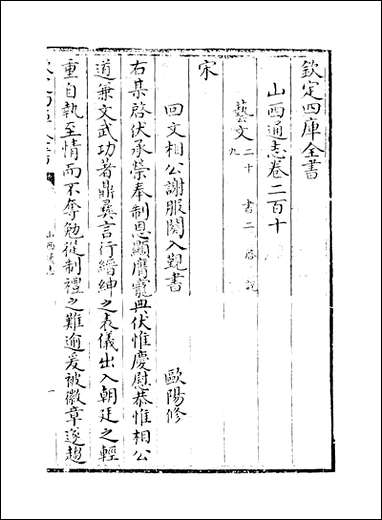 欽定四庫全書
山西通志卷二百十
藝文二十九 書二 啓
宋
回文相公謝服闋入覲書 歐陽修
右某啓伏承榮奉制恩顯膺寵典伏惟慶慰恭惟相公
道兼文武功著鼎彞言行縉紳之表儀出入朝廷之輕
重自執至情而不奪勉從制禮之難逾爰被徽章遂趨
山西通志
一